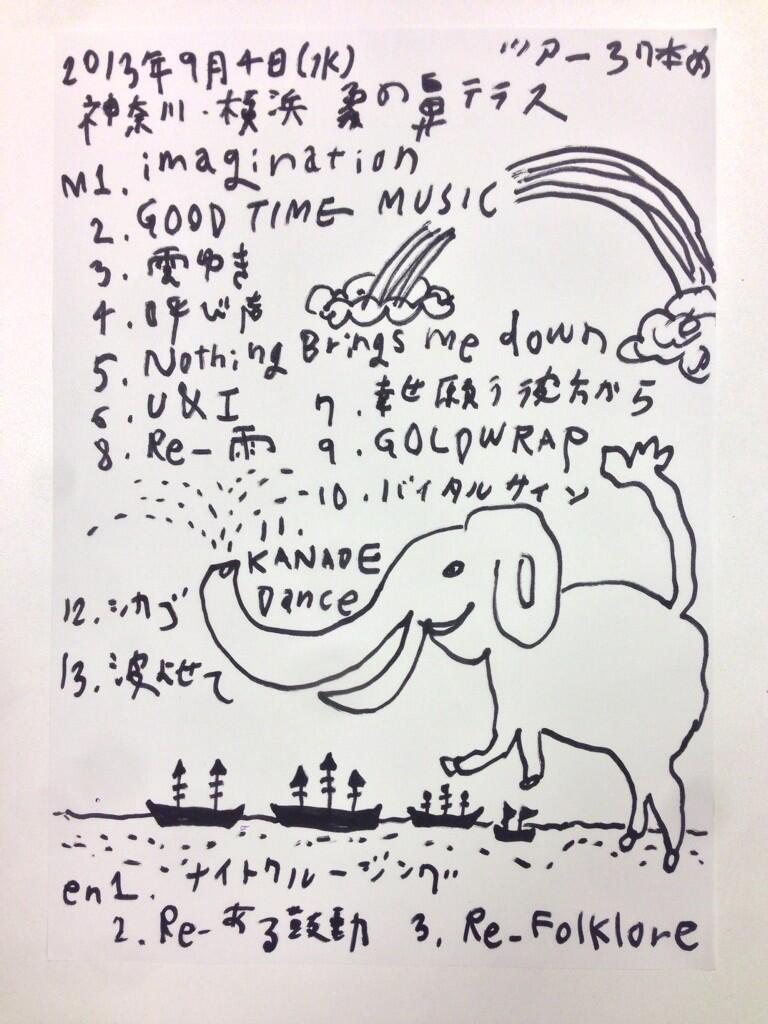 2013年9月4日(水)
ツアー37本め
神奈川・横浜 象の鼻テラス
M1. imagination
2. GOOD TIME MUSIC
3. 雲ゆき
4. 呼び声
5. Nothing Brings me down
6. U&I
7. 幸せ願う彼方から
8. Re-雨
9. GOLDWRAP
10. バイタルサイン
11. KANADE
Dance
12. シカゴ
13. 波よせて
en1. ナイトクルージング
2. Re-ある鼓動 3. Re-Folklore